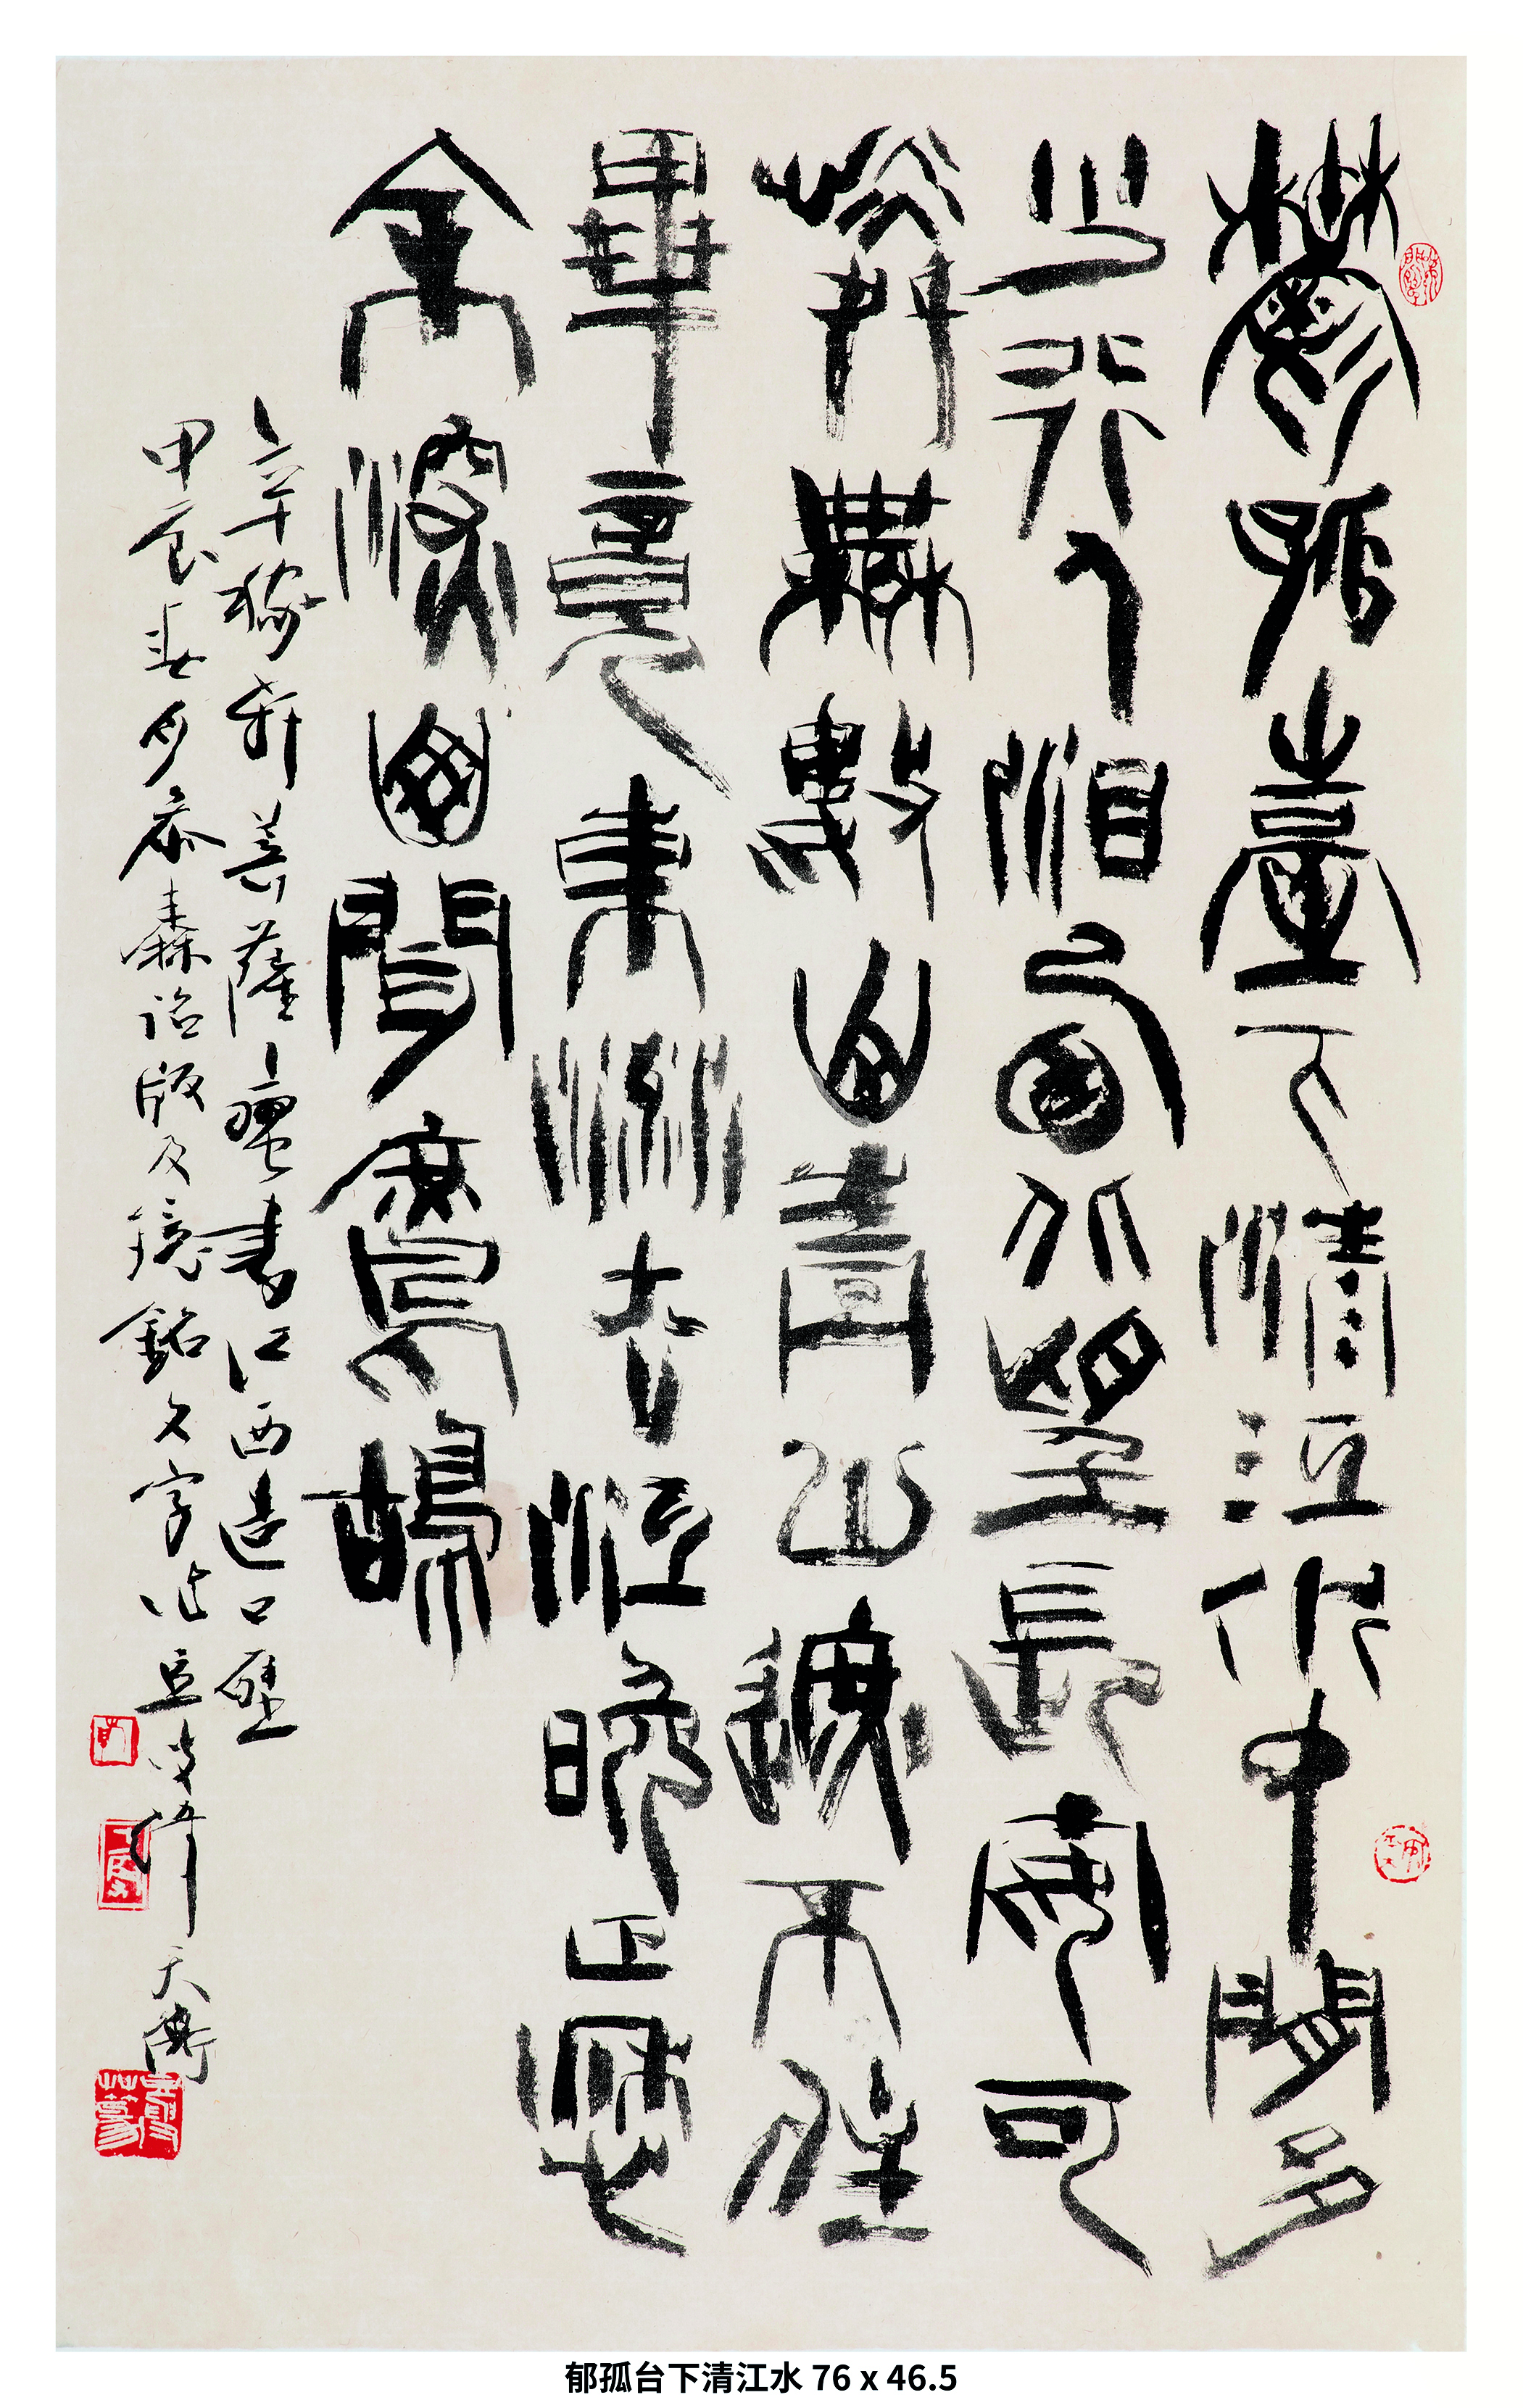 鬱孤臺下清江水中間多
少行人泪西北望長安可
憐無數山青山遮不住
畢竟東流去江晚正愁
余深山聞鷓鴣
辛稼軒菩薩蠻書江西造口壁
甲辰春月参秦詔版及鏡銘文字作豆叟韓天衡
郁孤台下清江水 76 x 46.5